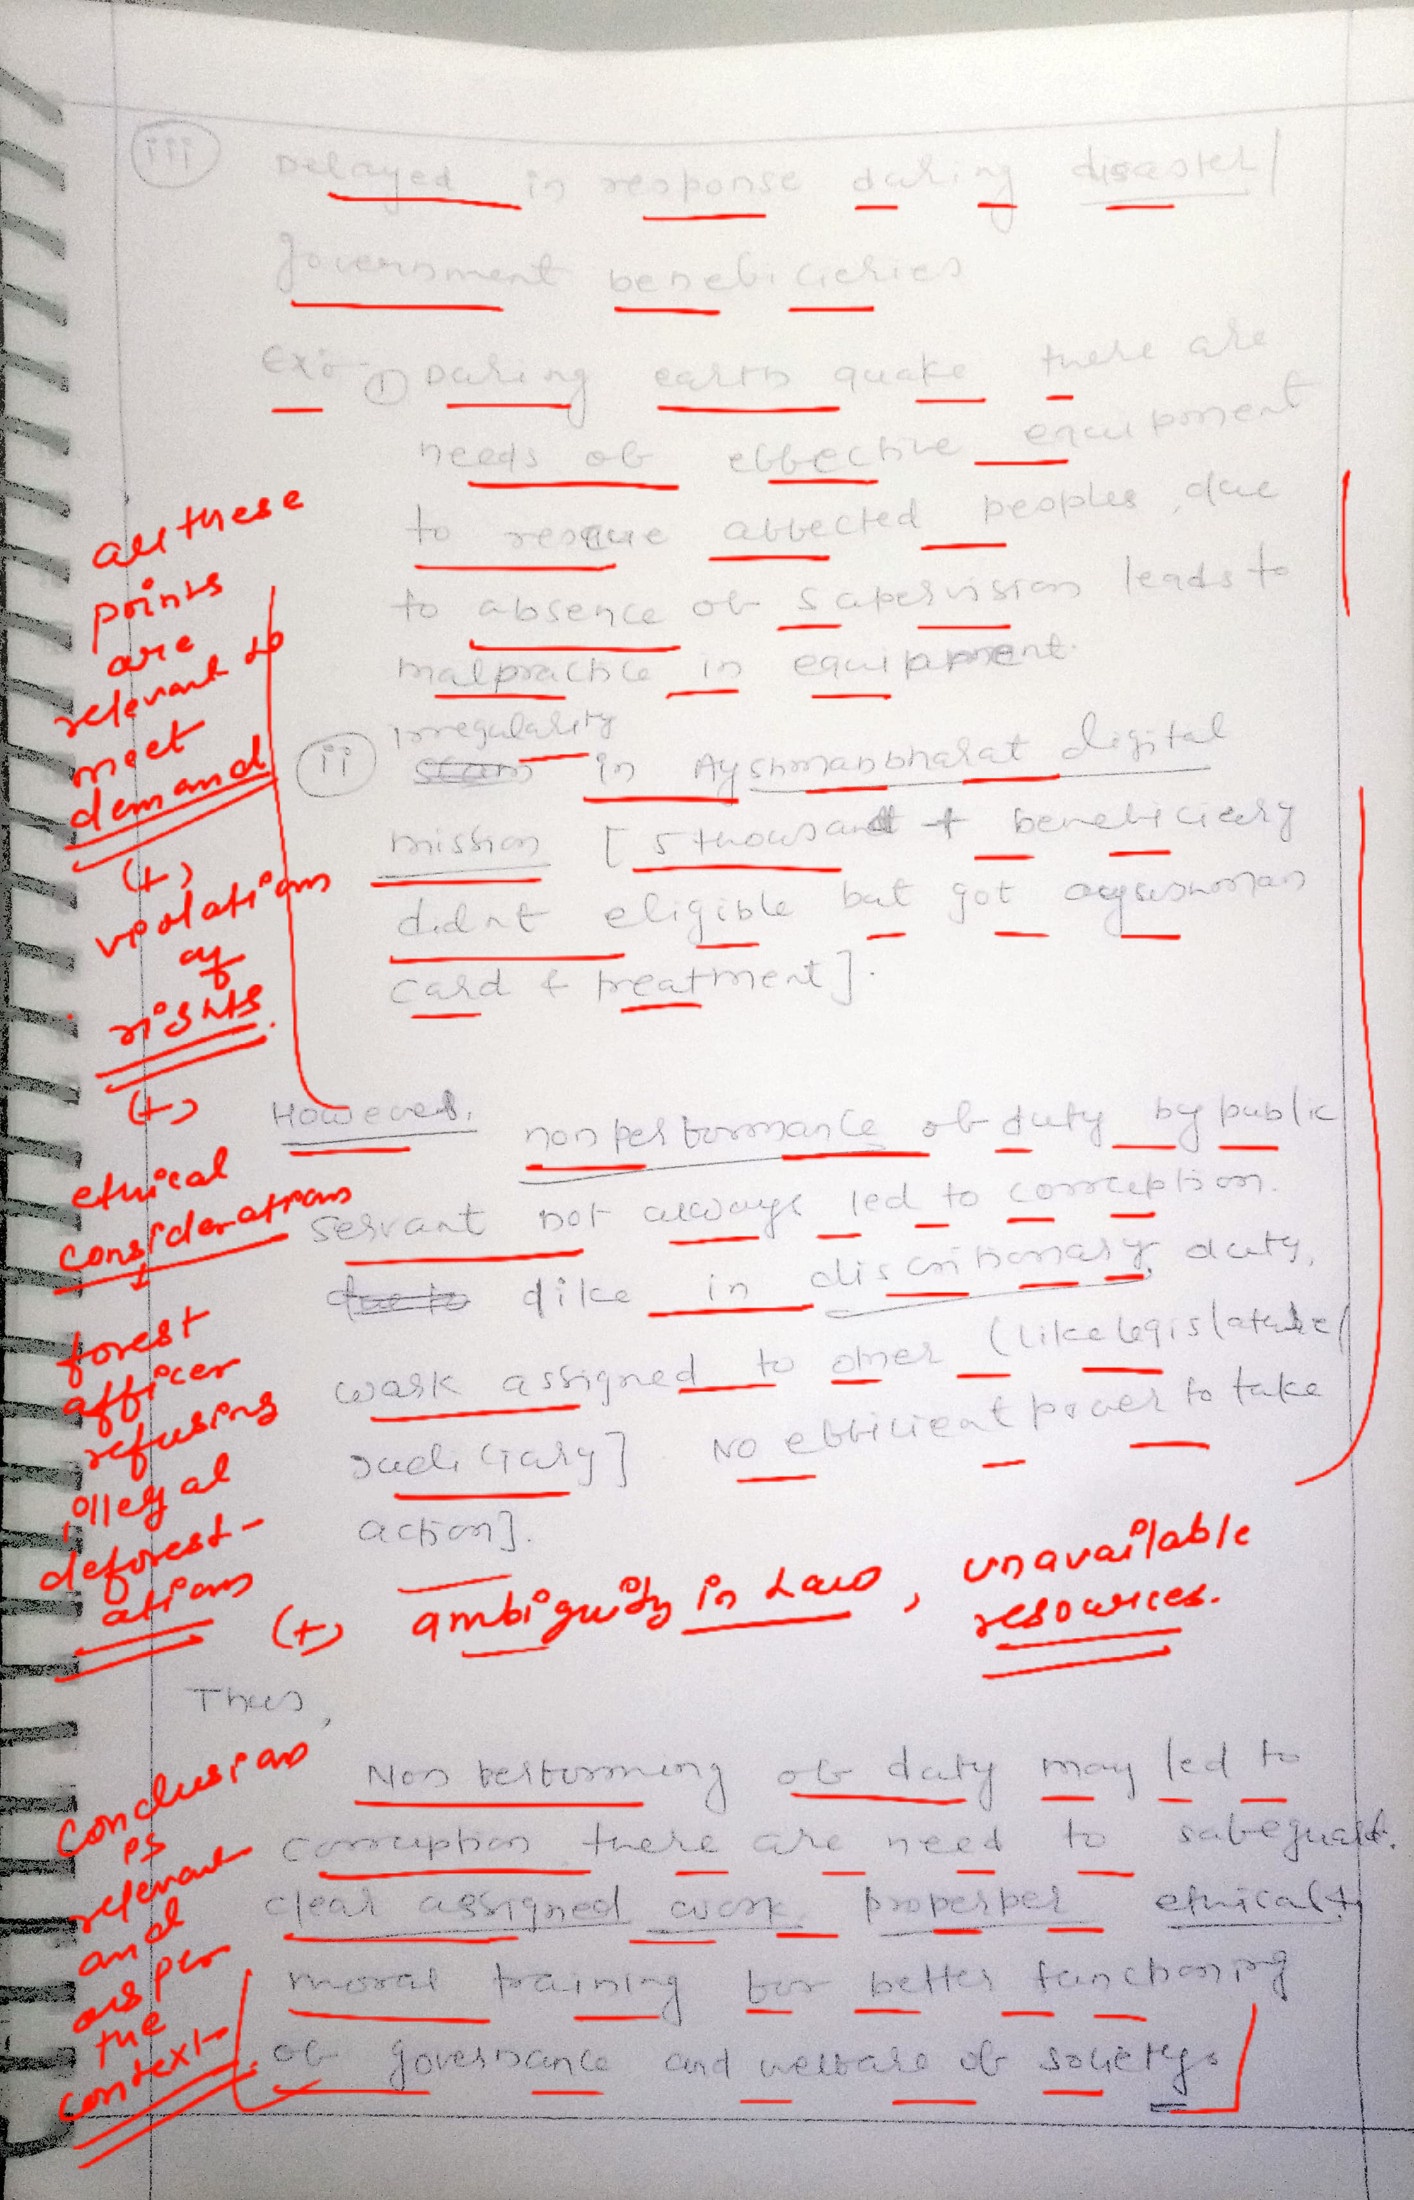 iii Delayed in response during disaster/
government beneficieries
Ex:- ① During earth quake there are
needs of effective equipment
to rescue affected peoples, due
to absence of supervision leads to
malpractice in equipment.
ii irregularity
in Ayshmanbharat digital
mission [5 thousand + beneficiery
didnt eligible but got ayushman
card & treatment].
However, nonperformance of duty by public
servant not always led to corruption.
like in discritionary duty,
work assigned to other (like legislature/
judiciary] No efficient power to take
action].
Thus,
Non performing of duty may led to
corruption there are need to safeguard.
clear assigned work, properper ethical &
moral training for better functioning
of governance and welfare of society.
all these
points
are
relevant to
meet
demand
(+)
violations
of
rights.
(+)
ethical
considerations
↓
forest
officer
refusing
illegal
deforest-
ations
(+) ambiguity in Law, unavailable
resources.
Conclusion
is
relevant
and
as per
the
context-